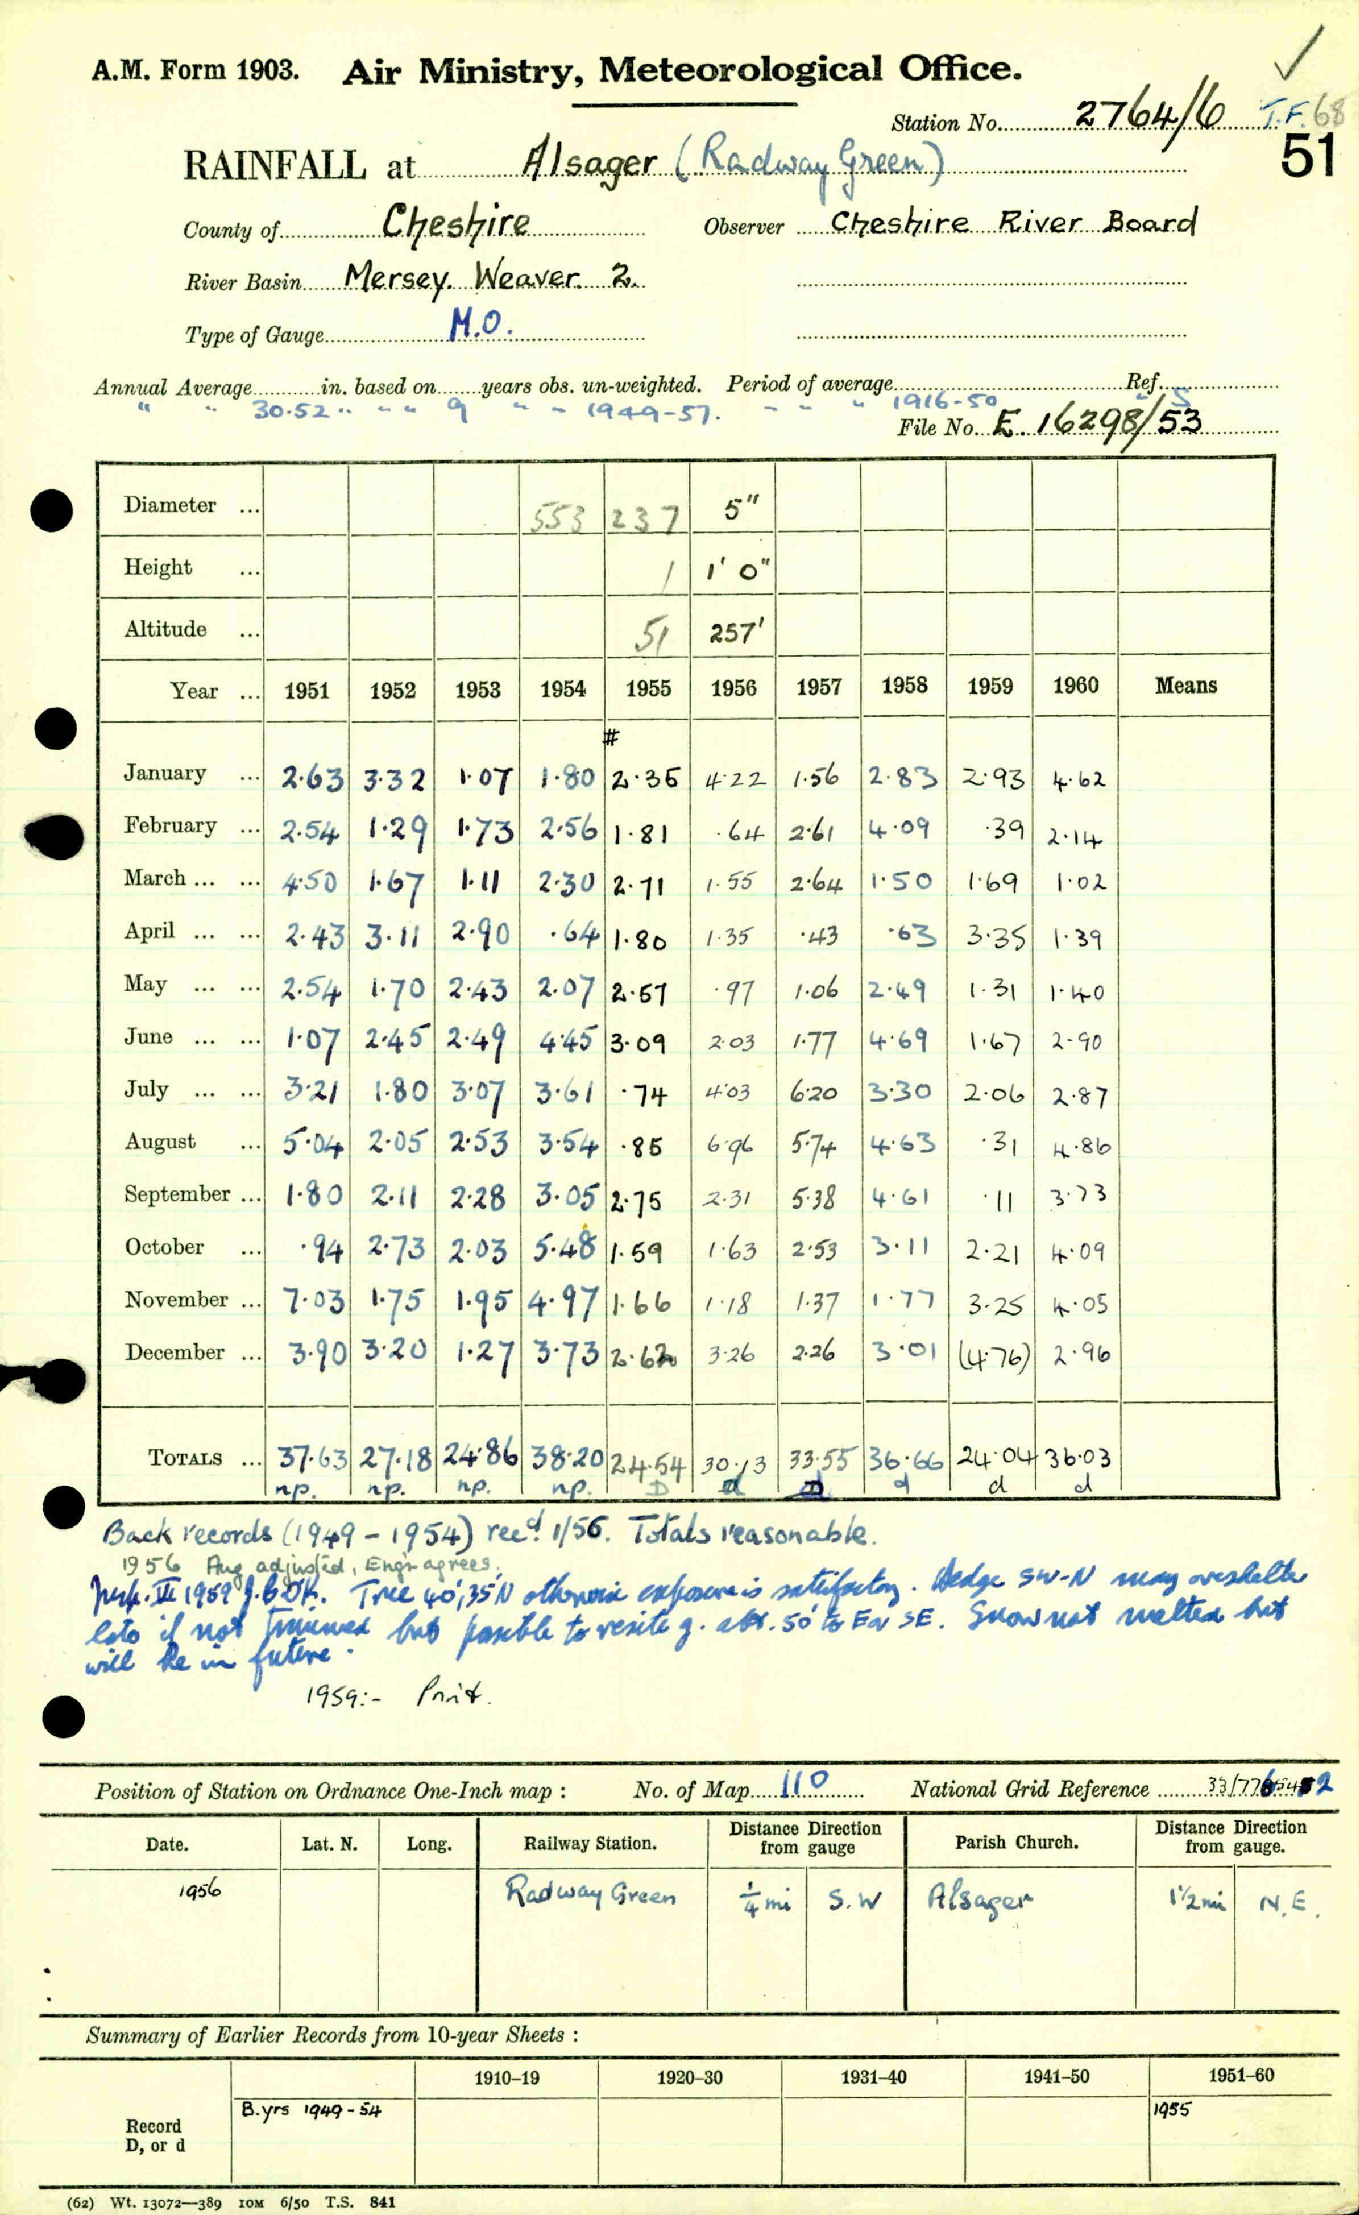 A.M. Form 1903. Air Ministry, Meteorological Office.
Station No. 2764/6 T.F. 68
51
RAINFALL at Alsager (Radway Green)
County of Cheshire Observer Cheshire River Board
River Basin Mersey. Weaver 2.
Type of Gauge M.O.
Annual Average in. based on years obs. un-weighted. Period of average Ref.
" " 30.52 " " " 9 " " 1949-57. " " " 1916-50 " S
File No. E. 16298/53
Diameter ... 553 237 5"
Height ... 1 1' 0"
Altitude ... 51 257'
Year ... 1951 1952 1953 1954 1955 1956 1957 1958 1959 1960 Means
#
January ... 2.63 3.32 1.07 1.80 2.35 4.22 1.56 2.83 2.93 4.62
February ... 2.54 1.29 1.73 2.56 1.81 .64 2.61 4.09 .39 2.14
March ... ... 4.50 1.67 1.11 2.30 2.71 1.55 2.64 1.50 1.69 1.02
April ... ... 2.43 3.11 2.90 .64 1.80 1.35 .43 .63 3.35 1.39
May ... ... 2.54 1.70 2.43 2.07 2.57 .97 1.06 2.49 1.31 1.40
June ... ... 1.07 2.45 2.49 4.45 3.09 2.03 1.77 4.69 1.67 2.90
July ... ... 3.21 1.80 3.07 3.61 .74 4.03 6.20 3.30 2.06 2.87
August ... 5.04 2.05 2.53 3.54 .85 6.96 5.74 4.63 .31 4.86
September ... 1.80 2.11 2.28 3.05 2.75 2.31 5.38 4.61 .11 3.73
October ... .94 2.73 2.03 5.48 1.59 1.63 2.53 3.11 2.21 4.09
November ... 7.03 1.75 1.95 4.97 1.66 1.18 1.37 1.77 3.25 4.05
December ... 3.90 3.20 1.27 3.73 2.62 3.26 2.26 3.01 (4.76) 2.96
TOTALS ... 37.63 27.18 24.86 38.20 24.54 30.13 33.55 36.66 24.04 36.03
np. np. np. np. D d d d d
Back records (1949 - 1954) recd. 1/56. Totals reasonable.
1956 Aug adjusted, Engr agrees.
Insp. VI 1959 Tree 40', 35' N otherwise exposure is satisfactory. Hedge SW-N may overshelter
later if not trimmed but possible to resite g. abt. 50' to E or SE. Snow not melted but
will be in future.
1959:- Print.
Position of Station on Ordnance One-Inch map : No. of Map 110 National Grid Reference 33/77
Date. Lat. N. Long. Railway Station. Distance from Direction gauge Parish Church. Distance from Direction gauge.
1956 Radway Green 1/4 mi S.W Alsager 1 1/2 mi N.E.
Summary of Earlier Records from 10-year Sheets :
1910-19 1920-30 1931-40 1941-50 1951-60
Record D, or d B.yrs 1949-54 1955
(62) Wt. 13072—389 10M 6/50 T.S. 841